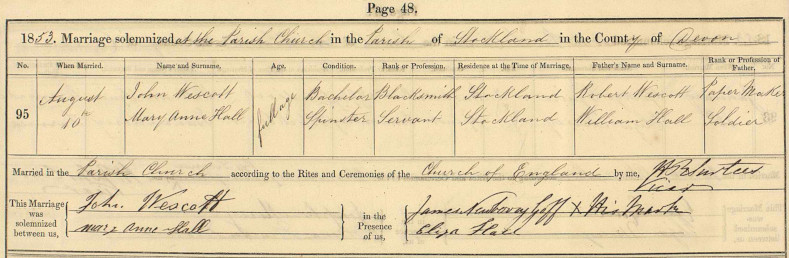 Page 48.
1853. Marriage solemnized at the Parish Church in the Parish of Stockland in the County of Devon
No. When Married. Name and Surname. Age. Condition. Rank or Profession. Residence at the Time of Marriage. Father's Name and Surname. Rank or Profession of Father.
95 August 10th John Wescott full age Bachelor Blacksmith Stockland Robert Wescott Paper Maker
Mary Anne Hall Spinster Servant Stockland William Hall Soldier
Married in the Parish Church according to the Rites and Ceremonies of the Church of England by me, Surtees
Vicar
This Marriage was solemnized between us, John Wescott in the Presence of us, James Goff X His Mark
Mary Anne Hall Eliza Hall